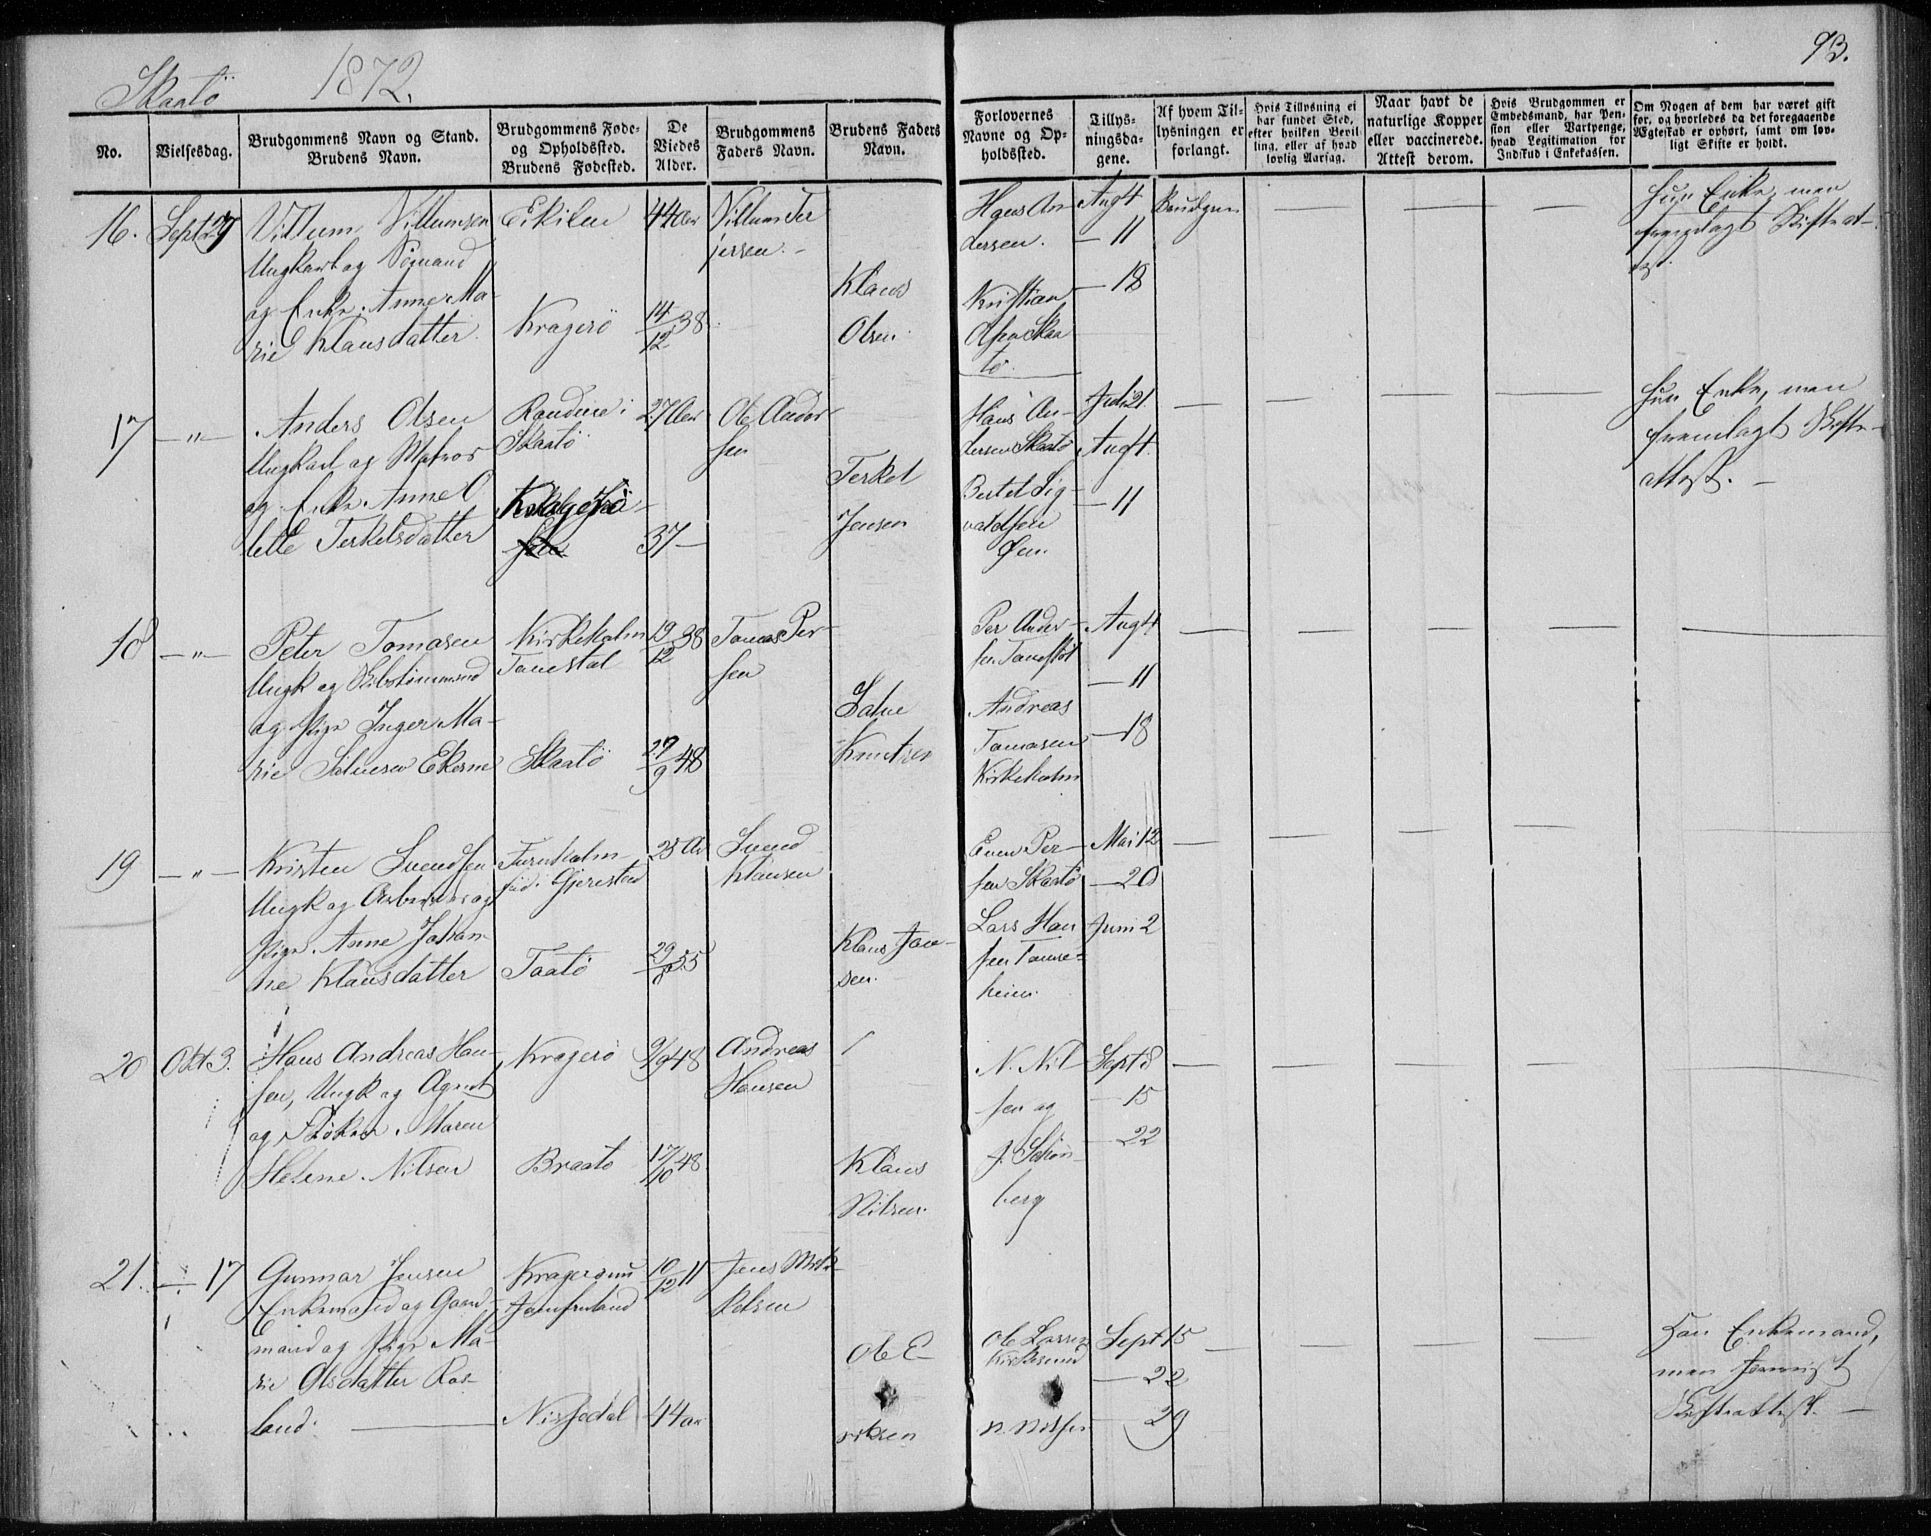 93.
Skaatö 1872.
No.
Vielsesdag.
Brudgommens Navn og Stand.
Brudens Navn.
Brudgommens Føde-
og Opholdssted.
Brudens Fødested.
De
Viedes
Alder.
Brudgommens
Faders Navn.
Brudens Faders
Navn.
Forlovernes
Navne og Op-
holdssted.
Tillys-
ningsda-
gene.
Af hvem Til-
lysningen er
forlangt.
Hvis Tillysning ei
har fundet Sted,
efter hvilken Bevil-
ling, eller af hvad
lovlig Aarsag.
Naar havt de
naturlige Kopper
eller vaccinerede.
Attest derom.
Hvis Brudgommen er
Embedsmand, har Pen-
sion eller Vartpenge,
hvad Legitimation for
Indskud i Enkekassen.
Om Nogen af dem har været gift
før, og hvorledes da det foregaaende
Ægteskab er ophørt, samt om lov-
ligt Skifte er holdt.
16.
Sept 27
Villum Villumsen
Ungkarl og Sømand
og Enke Anne Ma-
rie Klausdatter.
Eikilen
Kragerö
44 Aar
14/12 38
Villum Ter
jersen.
Klaus
Olsen.
Hans An
dersen.
Kristian
Olsen Skaa
tö.
Aug 4
— 11
— 18
Brudgom
Hun Enke, men
fremlagt Skifteat-
test.
17
— „ —
Anders Olsen
Ungkarl og Matros
og Enke Anne O
lette Terkelsdatter
Skaatö
27 Aar
37 —
Ole Ander
sen
Terkel
Jensen
Hans An-
dersen Skaatö
Bertel Sig-
valdsen
Øen.
Juli 21.
Aug 4.
— 11
Hun Enke, men
fremlagt Skifte-
attest. —
18
— „ —
Peter Tomasen
Ungk og
og Pige Inger Ma-
rie Salvesen Ekerne
Kirkeholm
Skaatö
19/12 38
27/9 48
Tomas Per-
sen
Salve
Knutsen
Per Ander-
sen
Andreas
Tomasen
Kirkeholm
Aug 4
— 11
— 18
19
— „ —
Kristen Svendsen
Ungk og Arbeider og
Pige Anne Johan-
ne Klausdatter
Furuholm
fød i Gjerestad
Taatö
25 Aar
29/8 55
Svend
Klausen
Klaus Jan-
sen.
Even Per-
sen Skaatö
Lars Han
sen
heien.
Mai 12
— 20
Juni 2
20
Okt 3.
Hans Andreas Han-
sen, Ungk og Agent
og Frøken Maren
Helene Nilsen
Kragerö
Braatö
9/9 48
17/10 48
Andreas
Hansen
Klaus
Nilsen.
N. Nil
sen og
J. Schön-
berg
Sept 8
— 15
— 22
21.
— 17
Gunnar Jensen
Enkemand og Gaard-
mand og Pige Ma-
rie Olsdatter Ros-
land.
Jomfruland
Nissedal
10/12 11
44 Aar
Jens Mik-
kelsen
Ole E
riksen
Ole Larsen
Kirkesund
N. Nilsen
Sept 15
— 22
29
Han Enkemand,
men forevist
Skifteattest. —